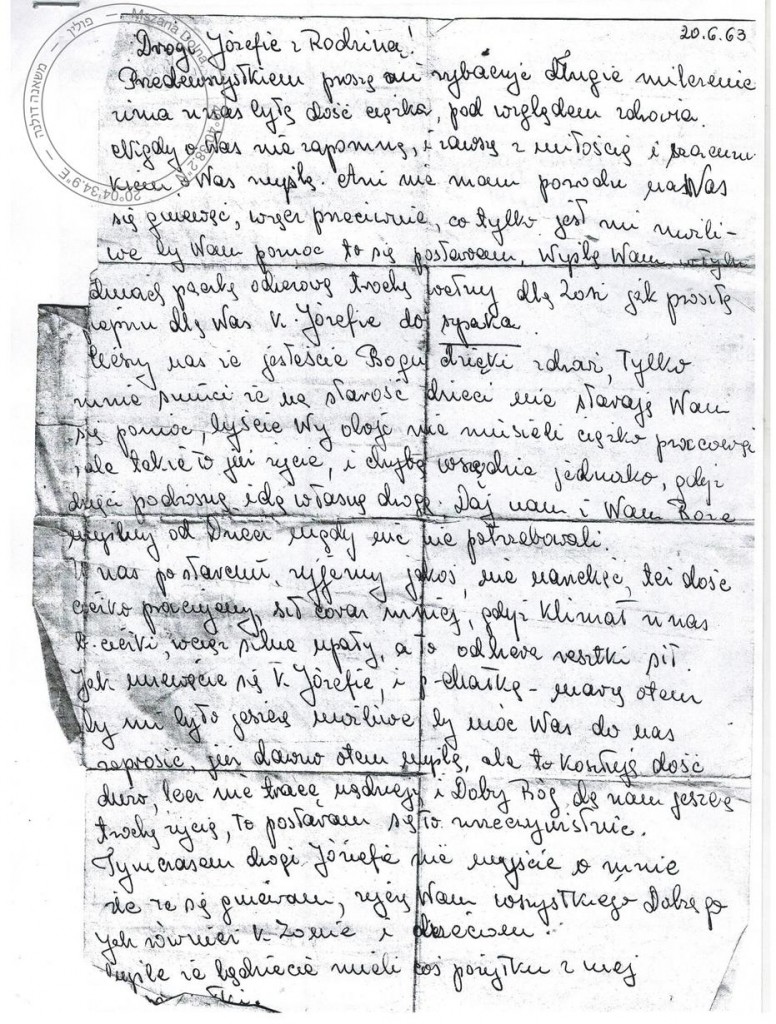 Mszana Dolna
פולין
משאנה דולנה
20°04'34,9"E
20.6.63
Drogi Józefie z Rodziną!
Przedewszystkiem proszę mi wybaczyć Długie milczenie
zima u nas była dość ciężka, pod względem zdrowia.
Nigdy o Was nie zapomnę, i zawszę z miłością i szacun
kiem o Was myślę. Ani nie mam powodu na Was
się gniewać, więcz przeciwnie, co tylko jest mi możli-
we by Wam pomóc to się postaram, Wyślę Wam w tych
dniach paczkę odzieżową trochę wełny dla Zosi jak prosiła
dla Was K. Józefie do
Cieszy nas że jesteście Bogu dzięki zdrowi, Tylko
mnie smuci że na starość dzieci nie starają Wam
się pomóc, byście Wy oboje nie musieli ciężko pracować
ale takie to jest życie, i chyba wszędzie jednako, gdyż
dzieci podrosną idą własną drogą. Daj nam i Wam Boże
byśmy od Dzieci nigdy nic nie potrzebowali.
U nas po staremu, żyjemy jakoś, nie narzekać, też dość
ciężko pracujemy, sił coraz mniej, gdyż Klimat u nas
b. ciężki, wciąż silne upały, a to odbiera resztki sił.
Jak miewacie się K. Józefie, i p-chałka - marzę otem
by mi było jeszcze możliwe by móc Was do nas
zaprosić, już dawno otem myślę, ale to Kosztuję dość
dużo, lecz nie tracę nadzieję i Dobry Bóg da nam jeszcze
trochę życia, to postaram się to urzeczywistnic.
Tymczasem drogi Józefie nie myście o mnie
źle że się gniewam, życzę Wam wszystkiego Dobrego
jak również K. Żonie i dzieciom.
Myślę że będziecie mieli coś pożytku z mej